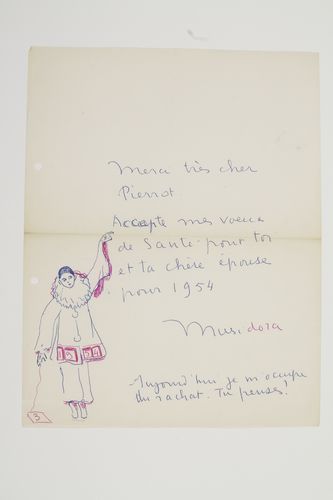 Merci très cher
Pierrot
Accepte mes voeux
de Santé pour toi
et ta chère épouse
pour 1954
Musidora
1954
- Aujourd'hui je m'occupe
du rachat. Tu penses!
3